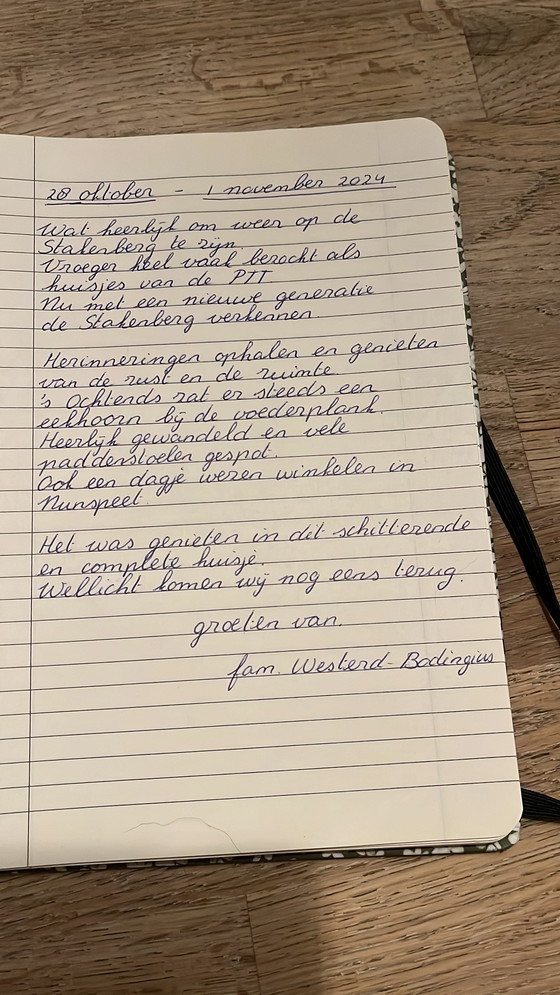 28 oktober - 1 november 2024
Wat heerlijk om weer op de
Stakenberg te zijn.
Vroeger heel vaak bezocht als
huisjes van de PTT.
Nu met een nieuwe generatie
de Stakenberg verkennen
Herinneringen ophalen en genieten
van de rust en de ruimte
's Ochtends zat er steeds een
eekhoorn bij de voederplank.
Heerlijk gewandeld en vele
paddenstoelen gespot.
Ook een dagje wezen winkelen in
Nunspeet.
Het was genieten in dit schitterende
en complete huisje.
Wellicht komen wij nog eens terug.
groeten van.
fam. Westerd-Bodingius